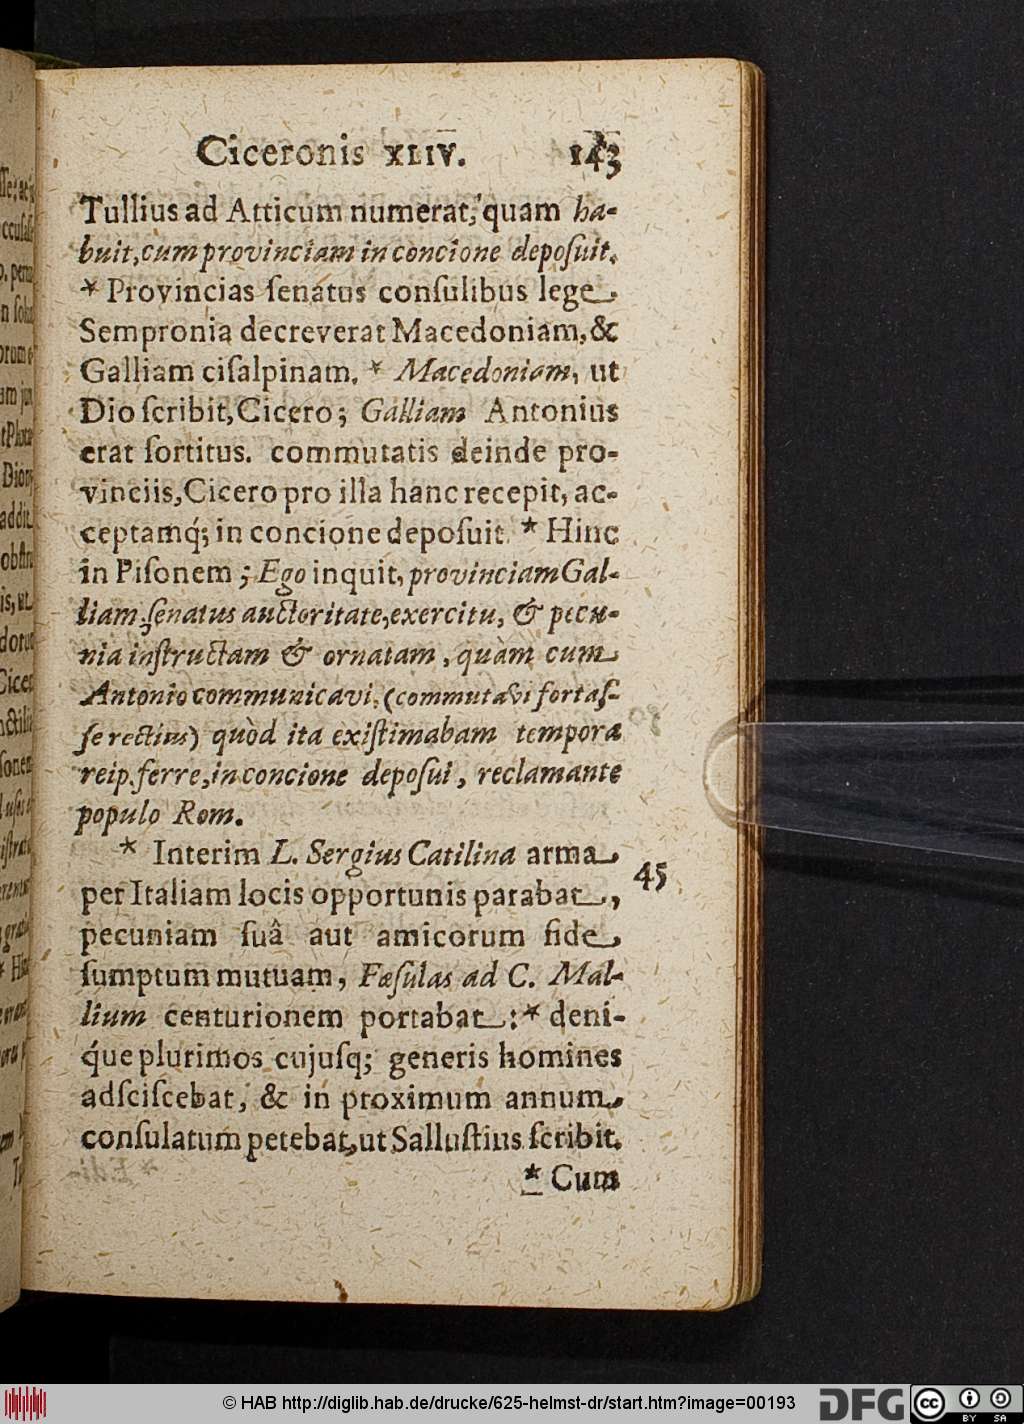 Ciceronis XLIV. 143
Tullius ad Atticum numerat, quam ha-
buit, cum provinciam in concione deposuit.
* Provincias ſenatus conſulibus lege,
Sempronia decreverat Macedoniam, &
Galliam ciſalpinam. * Macedoniam, ut
Dio ſcribit, Cicero; Galliam Antonius
erat ſortitus. commutatis deinde pro-
vinciis, Cicero pro illa hanc recepit, ac-
ceptamq́; in concione depoſuit. * Hinc
in Piſonem; Ego inquit, provinciam Gal-
liam, ſenatus auctoritate, exercitu, & pecu-
nia inſtructam & ornatam, quàm cum
Antonio communicavi, (commutavi fortaſ-
ſe rectius) quòd ita exiſtimabam tempora
reip. ferre, in concione depoſui, reclamante
populo Rom.
* Interim L. Sergius Catilina arma,
45
per Italiam locis opportunis parabat,
pecuniam ſuâ aut amicorum fide,
ſumptum mutuam, Fæſulas ad C. Mal-
lium centurionem portabat: * deni-
q́ue plurimos cujuſq; generis homines
adſciſcebat, & in proximum annum,
conſulatum petebat, ut Salluſtius ſcribit.
* Cum
© HAB http://diglib.hab.de/drucke/625-helmst-dr/start.htm?image=00193
DFG
cc BY SA